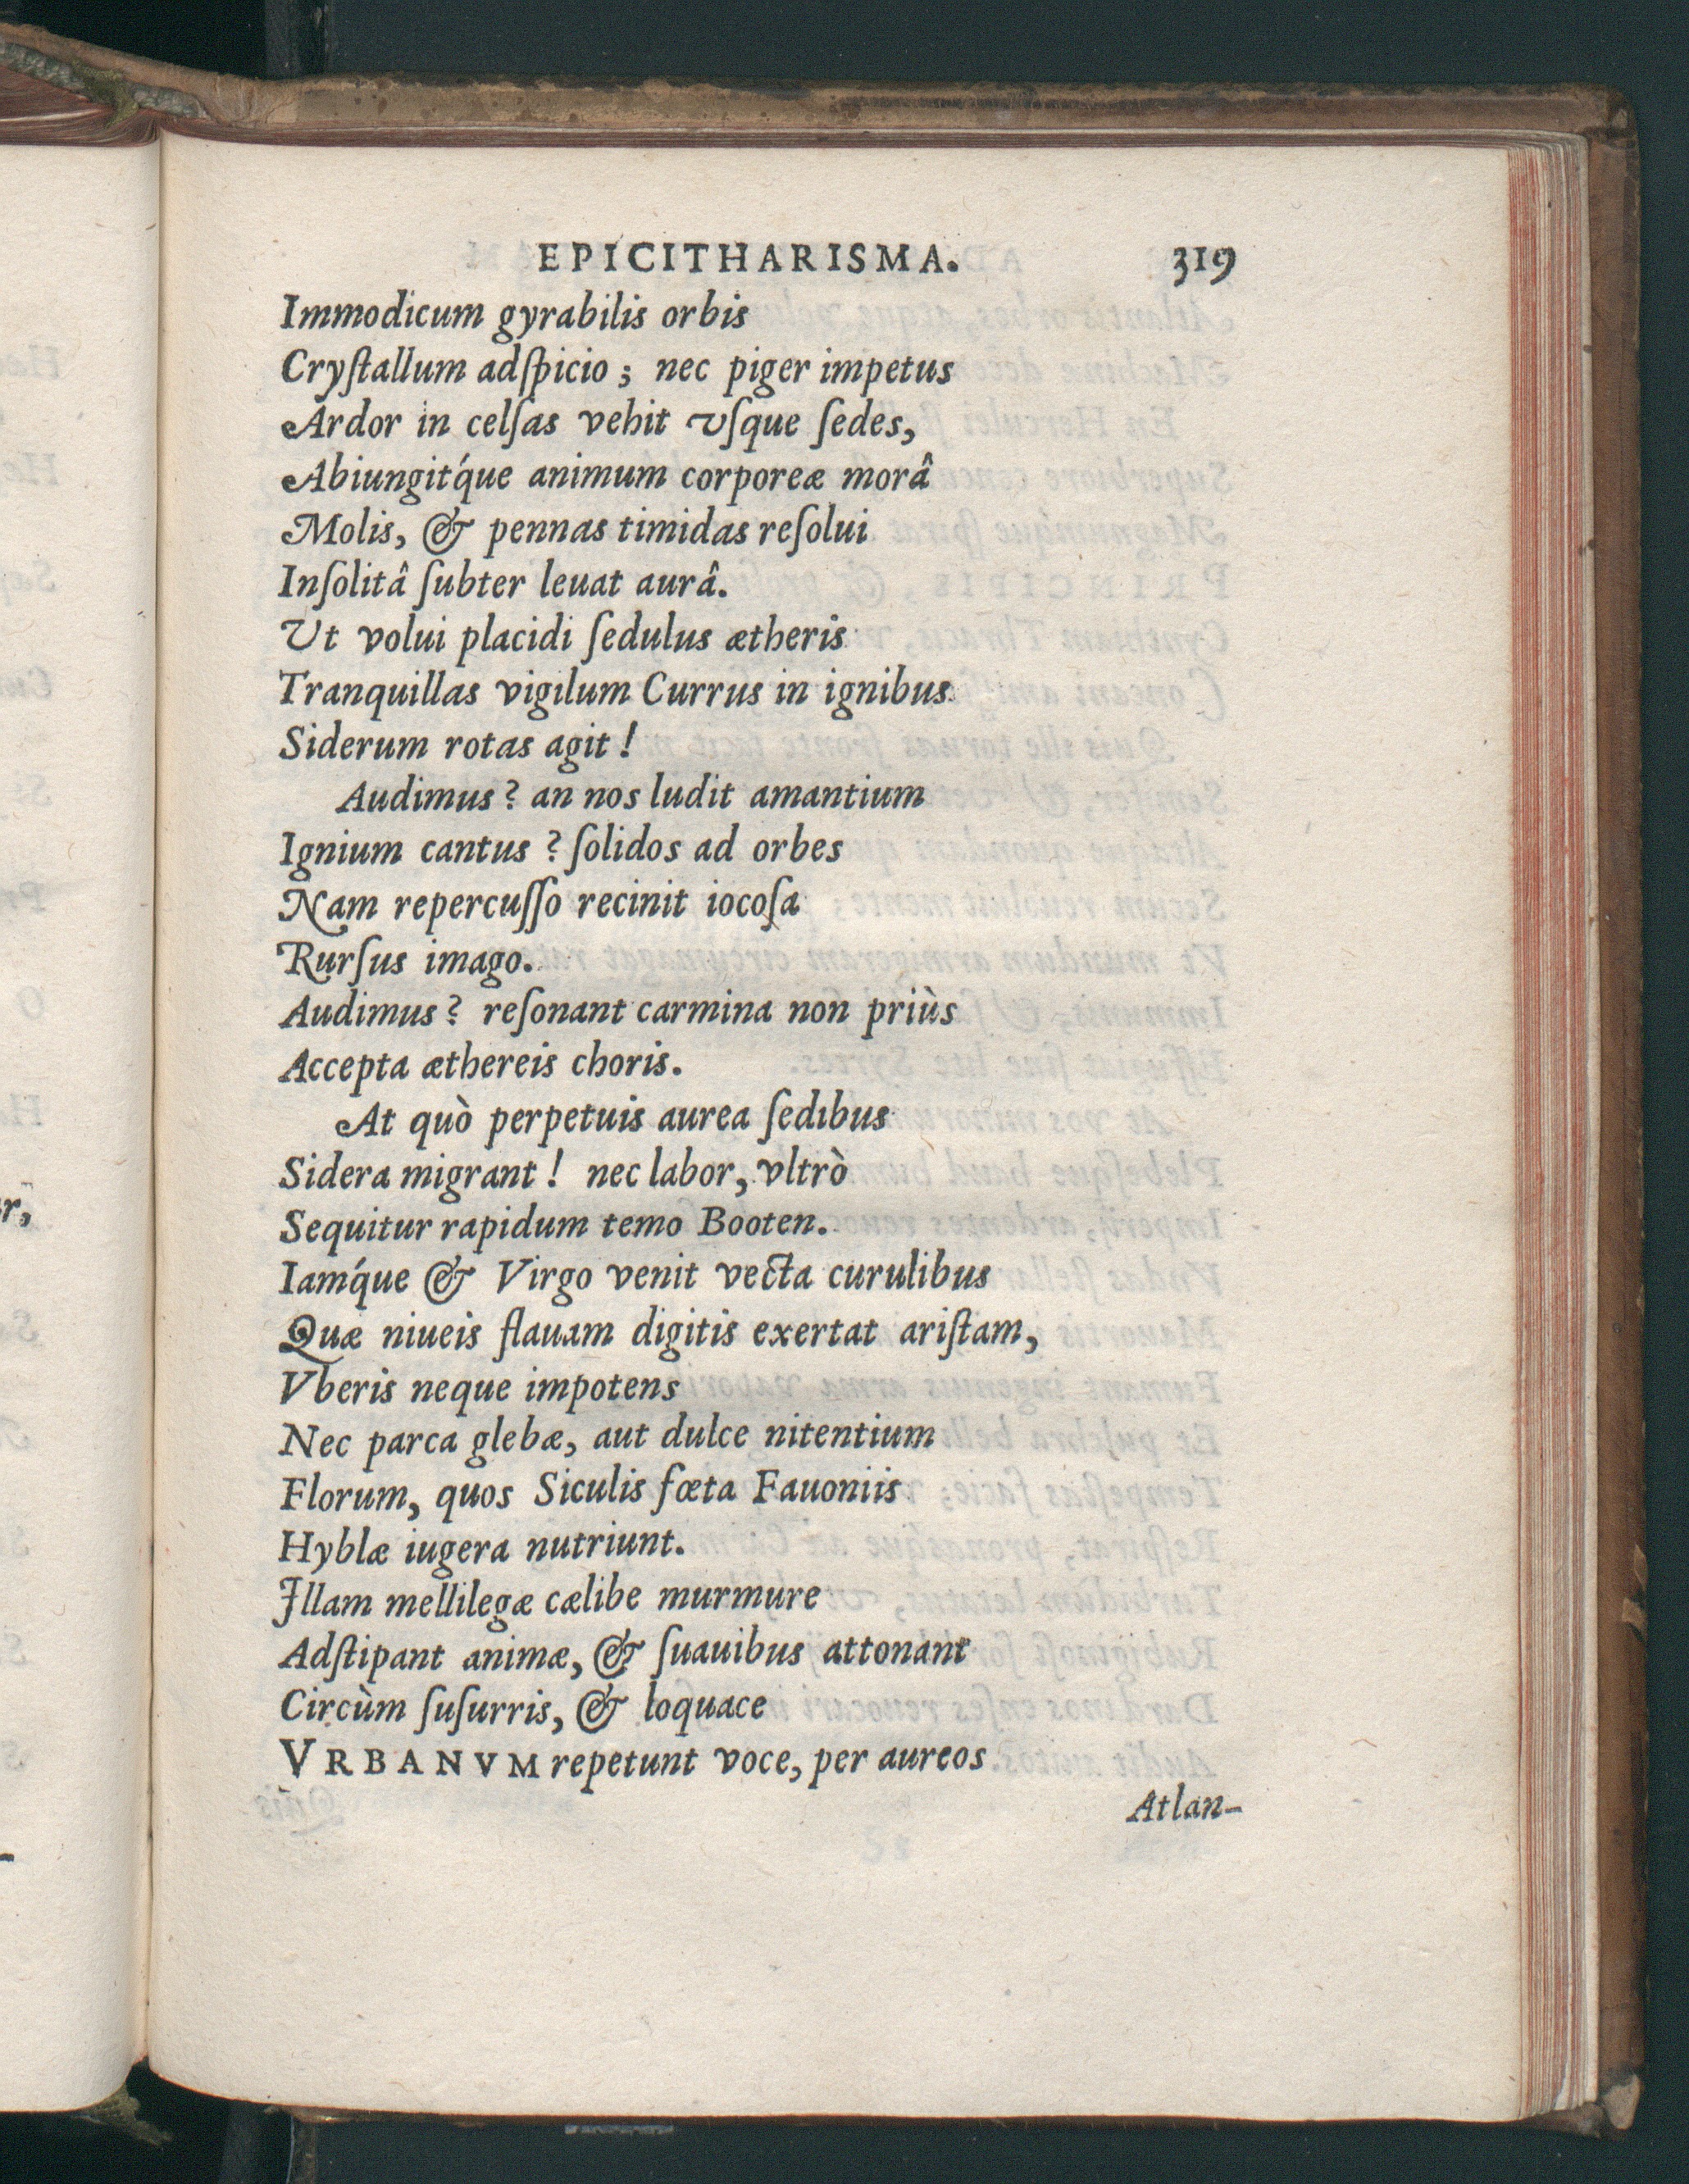 EPICITHARISMA. 319
Immodicum gyrabilis orbis
Cryſtallum adſpicio; nec piger impetus
Ardor in celſas vehit vſque ſedes,
Abiungit́que animum corporeæ morâ
Molis, & pennas timidas reſolui
Inſolitâ ſubter leuat aurâ.
Ut volui placidi ſedulus ætheris
Tranquillas vigilum Currus in ignibus
Siderum rotas agit!
Audimus? an nos ludit amantium
Ignium cantus? ſolidos ad orbes
Nam repercuſſo recinit iocoſa
Rurſus imago.
Audimus? reſonant carmina non priùs
Accepta æthereis choris.
At quò perpetuis aurea ſedibus
Sidera migrant! nec labor, vltrò
Sequitur rapidum temo Booten.
Iamq́ue & Virgo venit vecta curulibus
Quæ niueis flauam digitis exertat ariſtam,
Vberis neque impotens
Nec parca glebæ, aut dulce nitentium
Florum, quos Siculis fœta Fauoniis
Hyblæ iugera nutriunt.
Illam mellilegæ cælibe murmure
Adſtipant animæ, & ſuauibus attonant
Circùm ſuſurris, & loquace
VRBANVM repetunt voce, per aureos
Atlan-